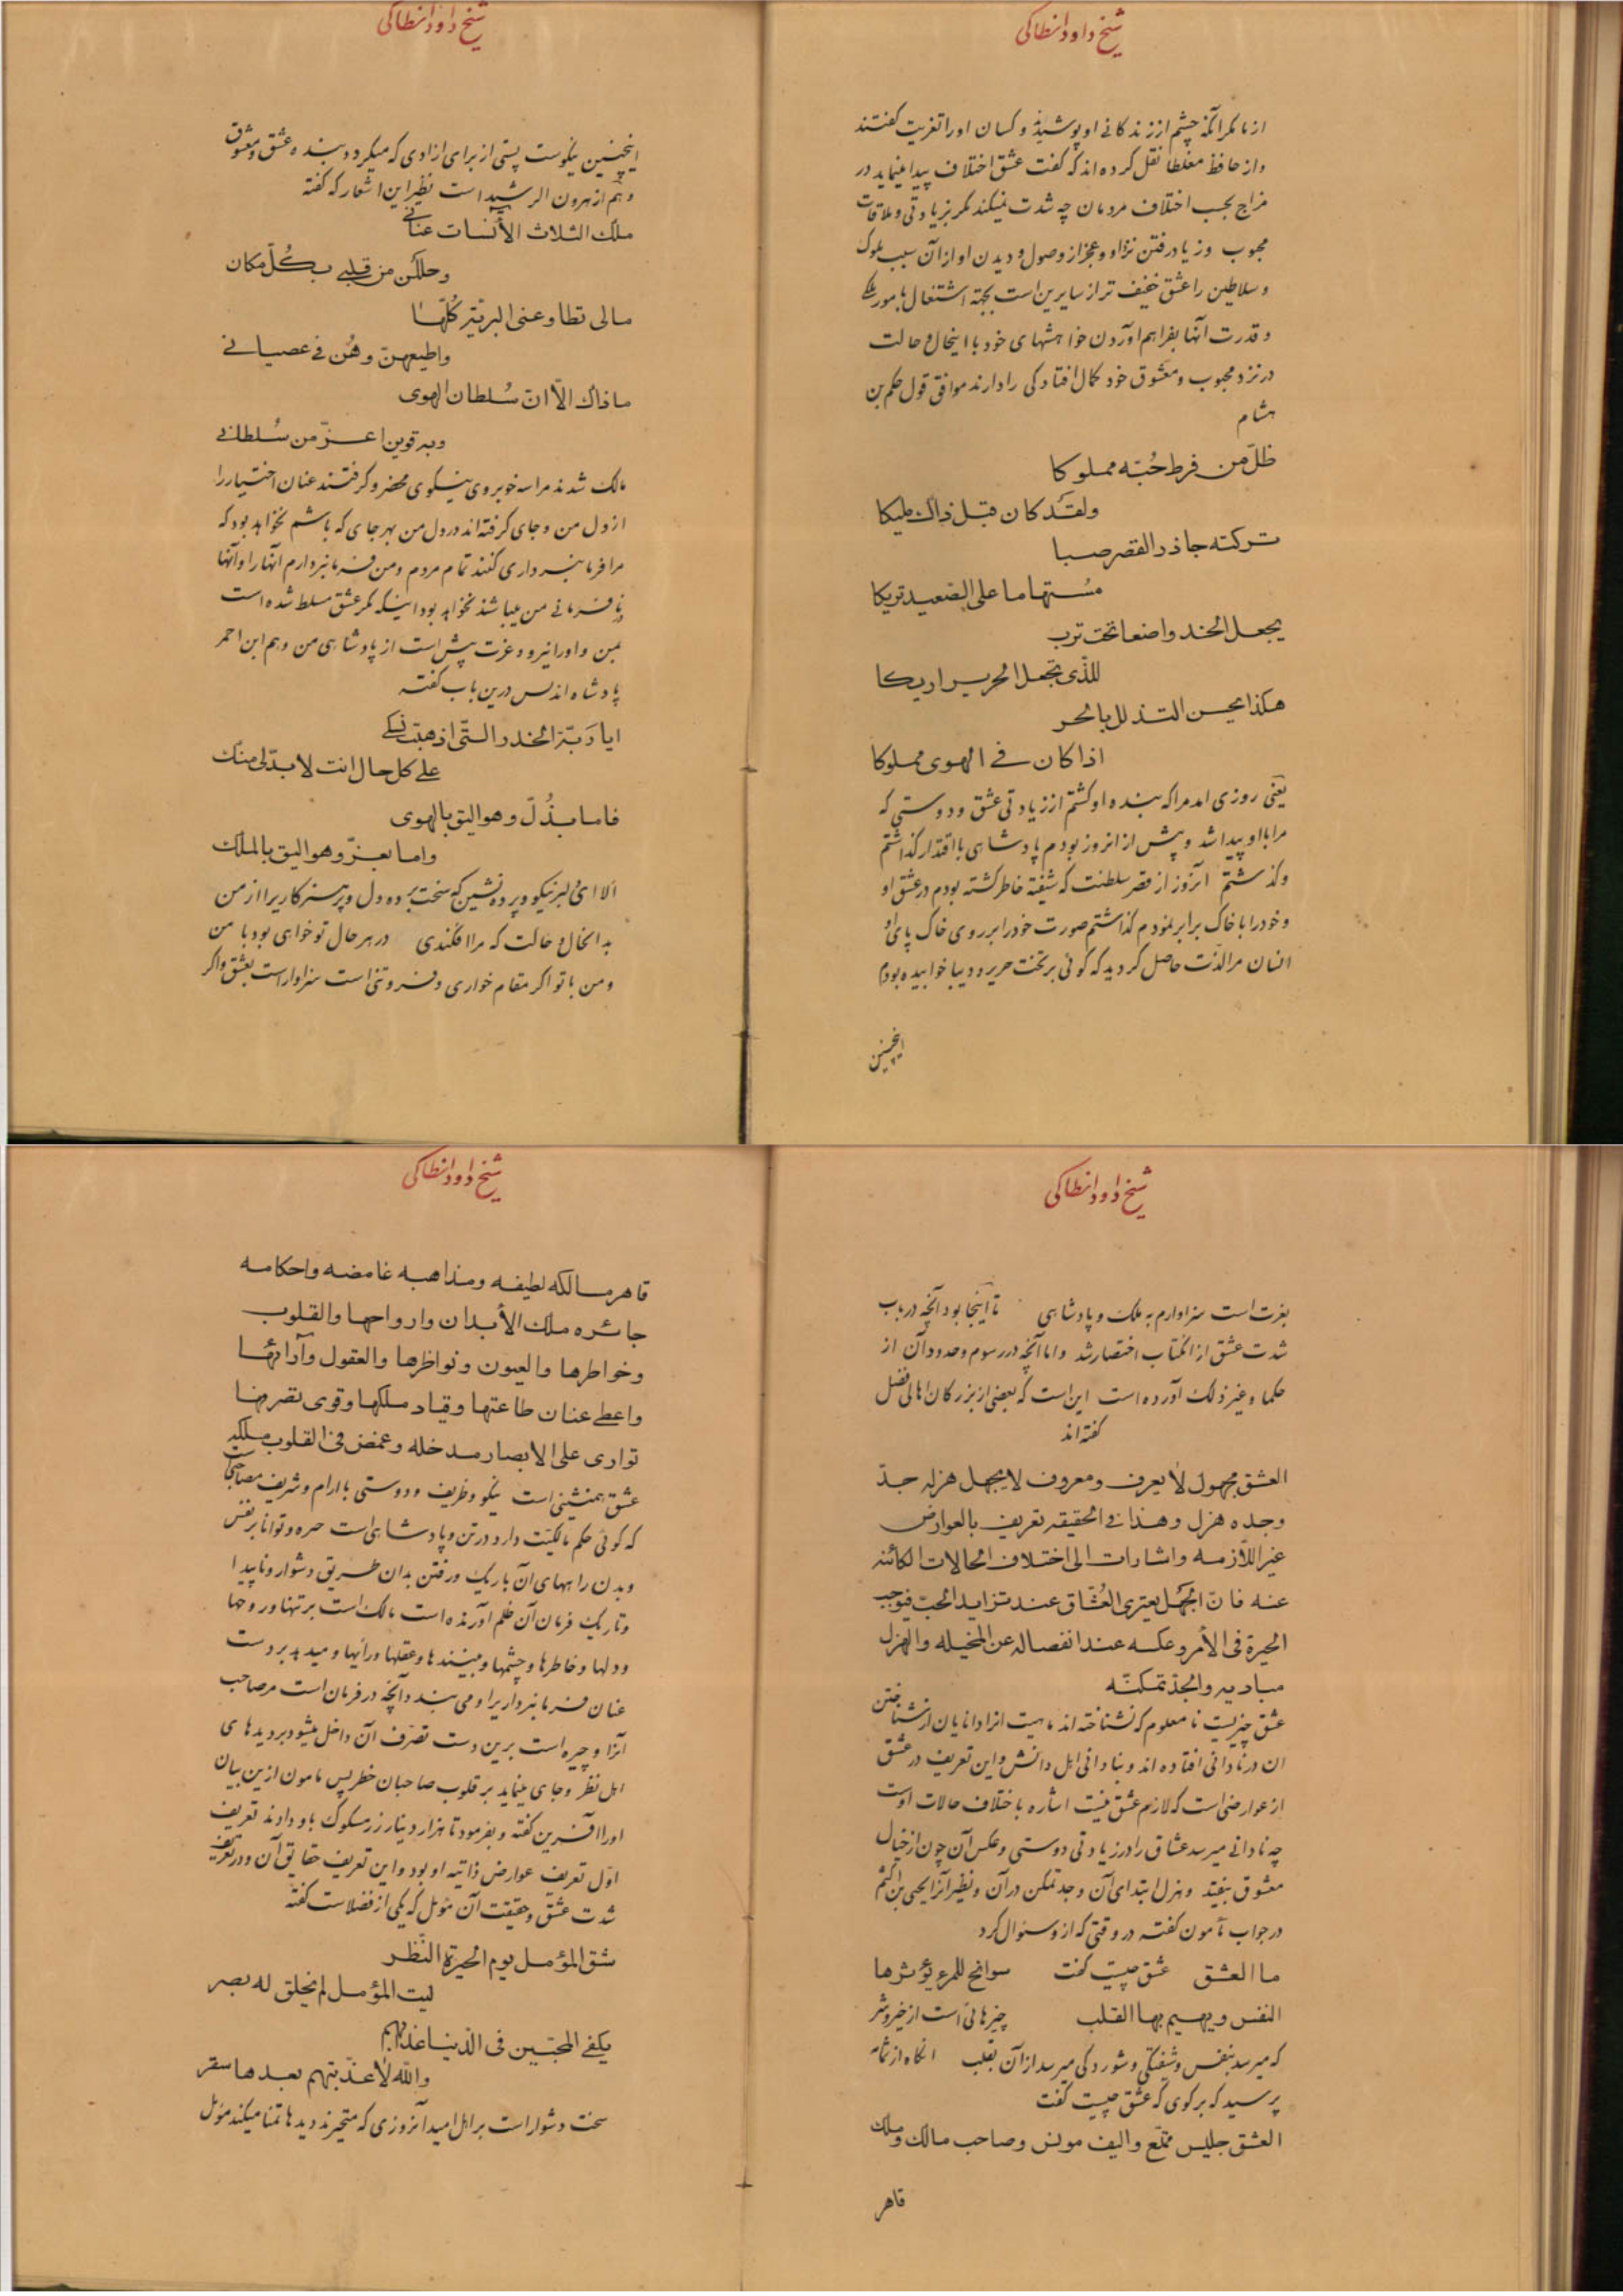 شیخ داود انطاکی
از ما مکر آنکه چشم از زندگانی او پوشیده و کسان او را تعزیت گفتند
و از حافظ مغلطا نقل کرده‌اند که گفت عشق اختلاف پیدا مینماید در
مزاج بحسب اختلاف مردمان چه شدت نمیکند مکر بزیادتی و ملاقات
محبوب و زیاد رفتن نزد او و عجز از وصول و دیدن او از آن سبب ملوک
و سلاطین را عشق خفیف تر از سایرین است بجهة اشتغال بامور ملک
و قدرت آنها بفراهم آوردن خواهشهای خود با اینحال و حالت
در نزد محبوب و معشوق خود کمال افتادکی را دارند موافق قول حکم بن
هشام
ظلّ من فرط حُبّه مملوکا
ولقد کان قبل ذاک ملیکا
ترکته جاذر القصر صبا
مُستهاما علی الصّعید تریکا
یجعل الخد واضعا تحت ترب
للذّی یجعل الحریر اریکا
هکذا یحسن التذلل بالحر
اذا کان فی الهوی مملوکا
یعنی روزی امد مرا که بنده او کشتم از زیادتی عشق و دوستی که
مرا با او پیدا شد و پیش از انروز بودم پادشاهی با اقتدار کذاشتم
و کذشتم آنروز از قصر سلطنت که شیفته خاطر کشته بودم در عشق او
و خود را با خاک برابر نمودم کذاشتم صورت خود را بر روی خاک پای او
انسان مرا لذّت حاصل کردید که کوئی بر تخت حریر و دیبا خوابیده بودم
اینچنین
شیخ داود انطاکی
اینچنین نیکوست پستی از برای ازادی که میکردد بنده عشق و معشوق
و هم از هرون الرشید است نظیر این اشعار که گفته
ملک الثلاث الأنسات عنانی
وحللن من قلبی بکُلّ مکان
مالی تطاوعنی البریّة کُلّها
واطیعهنّ وهُن فی عصیانی
ما ذاک الّا انّ سُلطان الهوی
وبه قوین اعزّ من سُلطانی
مالک شدند مرا سه خوبروی نیکوی محضر و کرفتند عنان اختیار را
از دل من و جای کرفته‌اند در دل من بهر جای که باشم نخواهد بود که
مرا فرمانبرداری کنند تمام مردم و من فرمانبردارم آنها را و آنها
در نافرمانی من میباشند نخواهد بود اینکه مکر عشق مسلط شده است
بمن و او را نیرو و عزت پیش است از پادشاهی من و هم ابن احمر
پادشاه اندلس درین باب گفته
ایا ربّة الخدر التّی اذهبت نسکی
علی کل حال انت لا بدّ لی منک
فاما بذُلّ وهو الیق بالهوی
واما بعزّ وهو الیق بالملک
الا ای دلبر نیکو و پرده نشین که سخت برده دل و پرهیزکاریرا از من
بد انحال و حالت که مرا افکندی در هر حال تو خواهی بود با من
و من با تو اکر مقام خواری و فروتنی است سزاوار است بعشق و اکر
شیخ داود انطاکی
بعزت است سزاوارم به ملک و پادشاهی تا آینجا بود آنچه در باب
شدت عشق از انکتاب اختصار شد و اما آنچه در رسوم و حدود آن از
حکما و غیر ذلک آورده است این است که بعضی از بزرکان اهالی فضل
گفته‌اند
العشق مجهول لا یعرف ومعروف لا یجهل هزله جدّ
وجده هزل وهذا فی الحقیقه تعریف بالعوارض
غیر اللّازمه واشارات الی اختلاف الحالات الکائنه
عنه فانّ الجهل یعتری العُشّاق عند تزاید الحبّ فیوجب
الحیرة فی الأمر وعکسه عند انفصاله عن المخیله والهزل
مبادیه والجدّ تمکنّه
عشق چیزیست نا معلوم که نشناخته‌اند ماهیت انرا دانایان از شناختن
ان در نادانی افتاده‌اند و بنادانی اهل دانش و این تعریف در عشق
از عوارضی است که لازم عشق نیست اشاره باختلاف حالات اوست
چه نادانی میرسد عشاق را در زیادتی دوستی و عکس آن چون از خیال
معشوق بیفتد و هزل ابتدای آن و جد تمکن در آن و نظیر آنرا یحیی بن اکثم
در جواب مأمون گفته در وقتی که از و سئوال کرد
ما العشق عشق چیست گفت سوانح للمرء یؤثرها
النفس ویهیم بها القلب چیزهائی است از خیر و شر
که میرسد بنفس و شیفتکی و شوردکی میرسد از آن بقلب انکاه از ثمامه
پرسید که بر کوی که عشق چیست گفت
العشق جلیس ممتّع والیف مونس وصاحب مالک وملک
قاهر
شیخ داود انطاکی
قاهر مسالکه لطیفه ومذاهبه غامضه واحکامه
جائره ملک الأبدان وارواحها والقلوب
وخواطرها والعیون ونواظرها والعقول وآرائها
واعطی عنان طاعتها وقیاد ملکها وقوی تصرفها
تواری علی الابصار مدخله وغمض فی القلوب مسلکه
عشق همنشینی است نیکو و ظریف و دوستی با ارام و شریف مصاحبی است
که کوئی حکم مالکیّت دارد در تن و پادشاهی است چیره و توانا بر نفس
و بدن راههای آن باریک و رفتن بدان طریق دشوار و ناپیدا
و تاریک فرمان آن ظلم آورنده است مالک است بر تنها و روحها
و دلها و خاطرها و چشمها و بینندها و عقلها و رایها و میدهد بر دست
عنان فرمانبرداریرا و می بندد آنچه در فرمان است مر صاحب
آنرا و چیره است برین دست تصرّف آن داخل میشود بر دیدهای
اهل نظر و جای مینماید بر قلوب صاحبان خطر پس مامون ازین بیان
او را آفرین گفته و بفرمود تا هزار دینار زر مسکوک باو دادند تعریف
اوّل تعریف عوارض ذاتیه او بود و این تعریف حقایق آن و در تعریف
شدت عشق و حقیقت آن مؤمل که یکی از فضلاست گفته
شق المؤمل یوم الحیرة النّظر
لیت المؤمل لم یخلق له بصر
یکفی المحبّین فی الدّنیا عذابهم
والله لا عذّبتهم بعدها سقر
سخت و شوار است بر اهل امید آنروزی که متحیرند دیدها تمنا میکند مؤمل